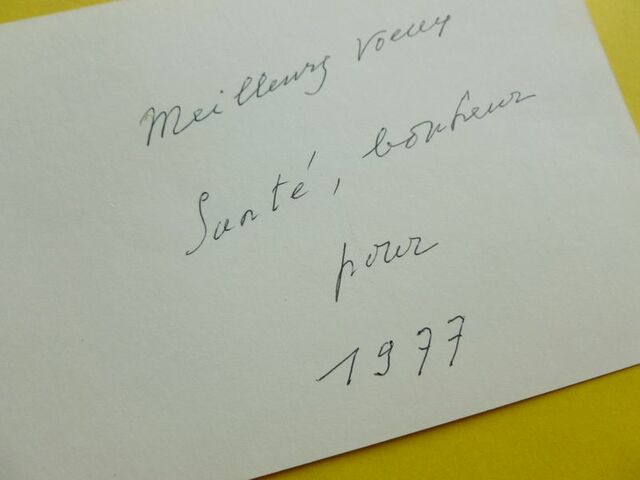 Meilleurs voeux
Santé, bonheur
pour
1977